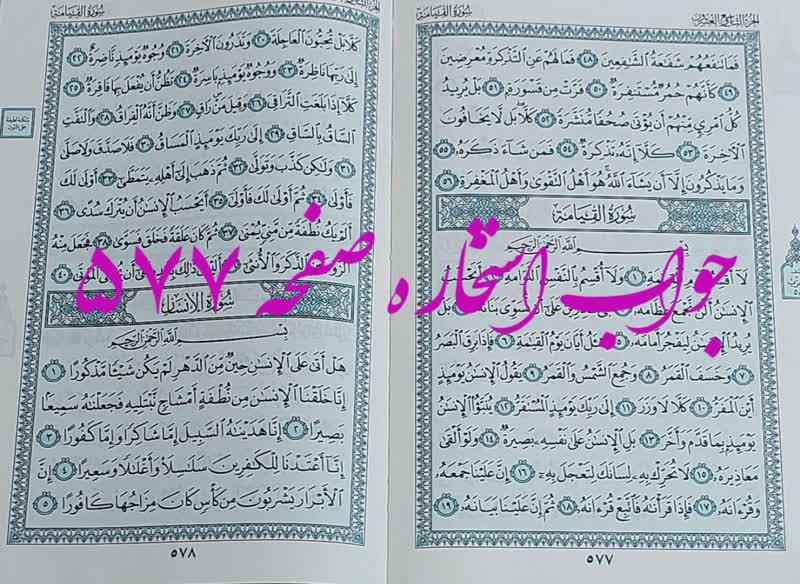 سُورَةُ القِيَامَةِ
الجزء التاسع والعشرون
فَمَا تَنفَعُهُمْ شَفَاعَةُ الشَّافِعِينَ ٤٨ فَمَا لَهُمْ عَنِ التَّذْكِرَةِ مُعْرِضِينَ
٤٩ كَأَنَّهُمْ حُمُرٌ مُّسْتَنفِرَةٌ ٥٠ فَرَّتْ مِن قَسْوَرَةٍ ٥١ بَلْ يُرِيدُ
كُلُّ امْرِئٍ مِّنْهُمْ أَن يُؤْتَىٰ صُحُفًا مُّنَشَّرَةً ٥٢ كَلَّا بَل لَّا يَخَافُونَ
الْآخِرَةَ ٥٣ كَلَّا إِنَّهُ تَذْكِرَةٌ ٥٤ فَمَن شَاءَ ذَكَرَهُ ٥٥
وَمَا يَذْكُرُونَ إِلَّا أَن يَشَاءَ اللَّهُ هُوَ أَهْلُ التَّقْوَىٰ وَأَهْلُ الْمَغْفِرَةِ ٥٦
سُورَةُ القِيَامَةِ
بِسْمِ اللَّهِ الرَّحْمَٰنِ الرَّحِيمِ
لَا أُقْسِمُ بِيَوْمِ الْقِيَامَةِ ١ وَلَا أُقْسِمُ بِالنَّفْسِ اللَّوَّامَةِ ٢ أَيَحْسَبُ
الْإِنسَانُ أَلَّن نَّجْمَعَ عِظَامَهُ ٣ بَلَىٰ قَادِرِينَ عَلَىٰ أَن نُّسَوِّيَ بَنَانَهُ ٤ بَلْ
يُرِيدُ الْإِنسَانُ لِيَفْجُرَ أَمَامَهُ ٥ يَسْأَلُ أَيَّانَ يَوْمُ الْقِيَامَةِ ٦ فَإِذَا بَرِقَ الْبَصَرُ
٧ وَخَسَفَ الْقَمَرُ ٨ وَجُمِعَ الشَّمْسُ وَالْقَمَرُ ٩ يَقُولُ الْإِنسَانُ يَوْمَئِذٍ
أَيْنَ الْمَفَرُّ ١٠ كَلَّا لَا وَزَرَ ١١ إِلَىٰ رَبِّكَ يَوْمَئِذٍ الْمُسْتَقَرُّ ١٢ يُنَبَّأُ الْإِنسَانُ
يَوْمَئِذٍ بِمَا قَدَّمَ وَأَخَّرَ ١٣ بَلِ الْإِنسَانُ عَلَىٰ نَفْسِهِ بَصِيرَةٌ ١٤ وَلَوْ أَلْقَىٰ
مَعَاذِيرَهُ ١٥ لَا تُحَرِّكْ بِهِ لِسَانَكَ لِتَعْجَلَ بِهِ ١٦ إِنَّ عَلَيْنَا جَمْعَهُ
وَقُرْآنَهُ ١٧ فَإِذَا قَرَأْنَاهُ فَاتَّبِعْ قُرْآنَهُ ١٨ ثُمَّ إِنَّ عَلَيْنَا بَيَانَهُ ١٩
٥٧٧
سُورَةُ القِيَامَةِ
كَلَّا بَلْ تُحِبُّونَ الْعَاجِلَةَ ٢٠ وَتَذَرُونَ الْآخِرَةَ ٢١ وُجُوهٌ يَوْمَئِذٍ نَّاضِرَةٌ ٢٢
إِلَىٰ رَبِّهَا نَاظِرَةٌ ٢٣ وَوُجُوهٌ يَوْمَئِذٍ بَاسِرَةٌ ٢٤ تَظُنُّ أَن يُفْعَلَ بِهَا فَاقِرَةٌ ٢٥
كَلَّا إِذَا بَلَغَتِ التَّرَاقِيَ ٢٦ وَقِيلَ مَنْ رَاقٍ ٢٧ وَظَنَّ أَنَّهُ الْفِرَاقُ ٢٨ وَالْتَفَّتِ
السَّاقُ بِالسَّاقِ ٢٩ إِلَىٰ رَبِّكَ يَوْمَئِذٍ الْمَسَاقُ ٣٠ فَلَا صَدَّقَ وَلَا صَلَّىٰ
٣١ وَلَٰكِن كَذَّبَ وَتَوَلَّىٰ ٣٢ ثُمَّ ذَهَبَ إِلَىٰ أَهْلِهِ يَتَمَطَّىٰ ٣٣ أَوْلَىٰ لَكَ
فَأَوْلَىٰ ٣٤ ثُمَّ أَوْلَىٰ لَكَ فَأَوْلَىٰ ٣٥ أَيَحْسَبُ الْإِنسَانُ أَن يُتْرَكَ سُدًى ٣٦
أَلَمْ يَكُ نُطْفَةً مِّن مَّنِيٍّ يُمْنَىٰ ٣٧ ثُمَّ كَانَ عَلَقَةً فَخَلَقَ فَسَوَّىٰ ٣٨ فَجَعَلَ مِنْهُ
الزَّوْجَيْنِ الذَّكَرَ وَالْأُنثَىٰ ٣٩ أَلَيْسَ ذَٰلِكَ بِقَادِرٍ عَلَىٰ أَن يُحْيِيَ الْمَوْتَىٰ ٤٠
سُورَةُ الإِنسَانِ
بِسْمِ اللَّهِ الرَّحْمَٰنِ الرَّحِيمِ
هَلْ أَتَىٰ عَلَى الْإِنسَانِ حِينٌ مِّنَ الدَّهْرِ لَمْ يَكُن شَيْئًا مَّذْكُورًا ١
إِنَّا خَلَقْنَا الْإِنسَانَ مِن نُّطْفَةٍ أَمْشَاجٍ نَّبْتَلِيهِ فَجَعَلْنَاهُ سَمِيعًا
بَصِيرًا ٢ إِنَّا هَدَيْنَاهُ السَّبِيلَ إِمَّا شَاكِرًا وَإِمَّا كَفُورًا ٣
إِنَّا أَعْتَدْنَا لِلْكَافِرِينَ سَلَاسِلَ وَأَغْلَالًا وَسَعِيرًا ٤ إِنَّ
الْأَبْرَارَ يَشْرَبُونَ مِن كَأْسٍ كَانَ مِزَاجُهَا كَافُورًا ٥
٥٧٨
جواب استخاره صفحه ۵۷۷